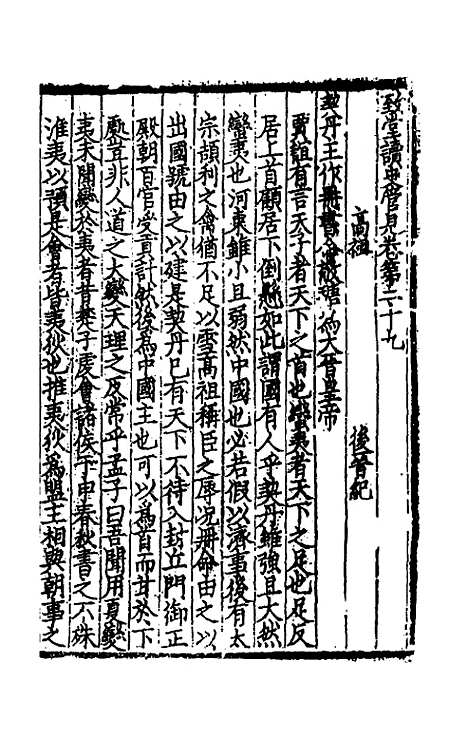 致堂讀史管見卷第二十九
高祖　後晉紀
契丹主作冊書命敬瑭為大晉皇帝
賈誼有言天子者天下之首也蠻夷者天下之足也足反
居上首顧居下倒縣如此謂國有人乎契丹雖強且大然
蠻夷也河東雖小且弱然中國也必若假以濟事後有太
宗頡利之禽猶不足以雪高祖稱臣之辱况冊命由之以
出國號由之以建是契丹已有天下不待入封丘門御正
殿朝百官受貢計然後為中國主也可以為首而甘於下
處豈非人道之大變天理之反常乎孟子曰吾聞用夏變
夷未聞變於夷者昔楚子麇會諸侯于申春秋書之不殊
淮夷以預是會者皆夷狄也推夷狄為盟主相與朝事之